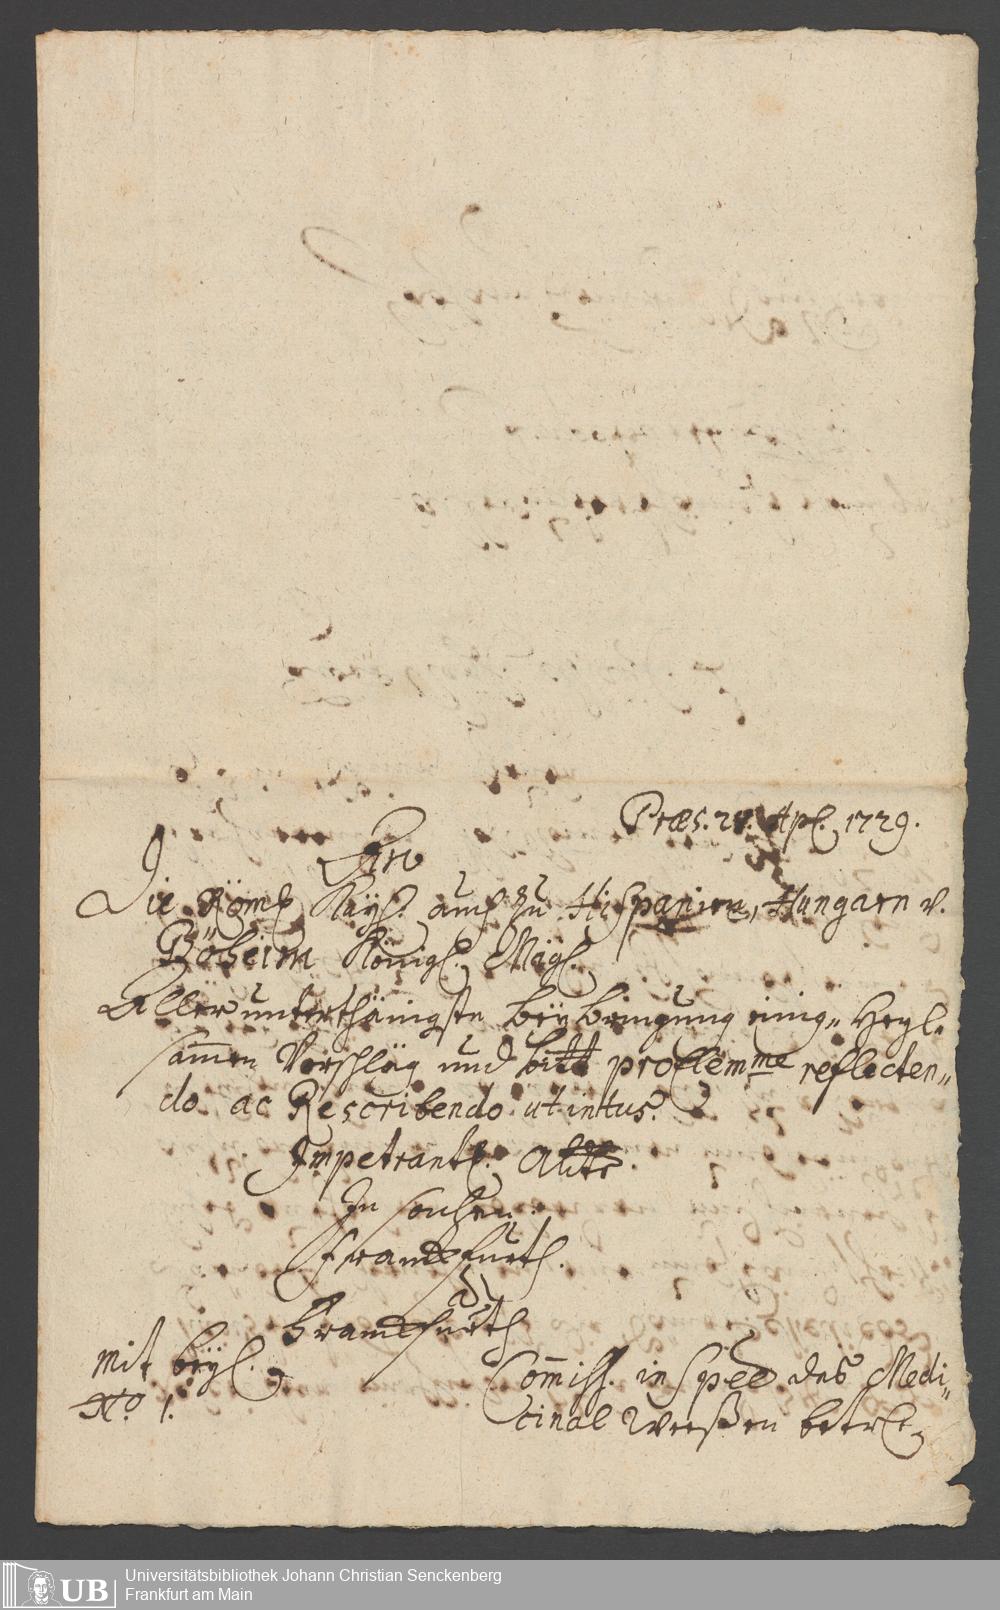 Præs. 28. Apl. 1729.
An
Die Röm. Kayß. auch zu Hispanien, Hungarn v.
Böheim Königl. May.
Aller unterthänigste beybringung einig„ Heyl„
samen Vorschläg und bitt pro clemme reflecten„
do ac Rescribendo ut intus.
Impetrant.
In sachen
Franckfurth.
ad
Franckfurth
mit beyl.
No. 1.
Commiss. in spee das Medi„
cinal Weeßen betr.
UB
Universitätsbibliothek Johann Christian Senckenberg
Frankfurt am Main